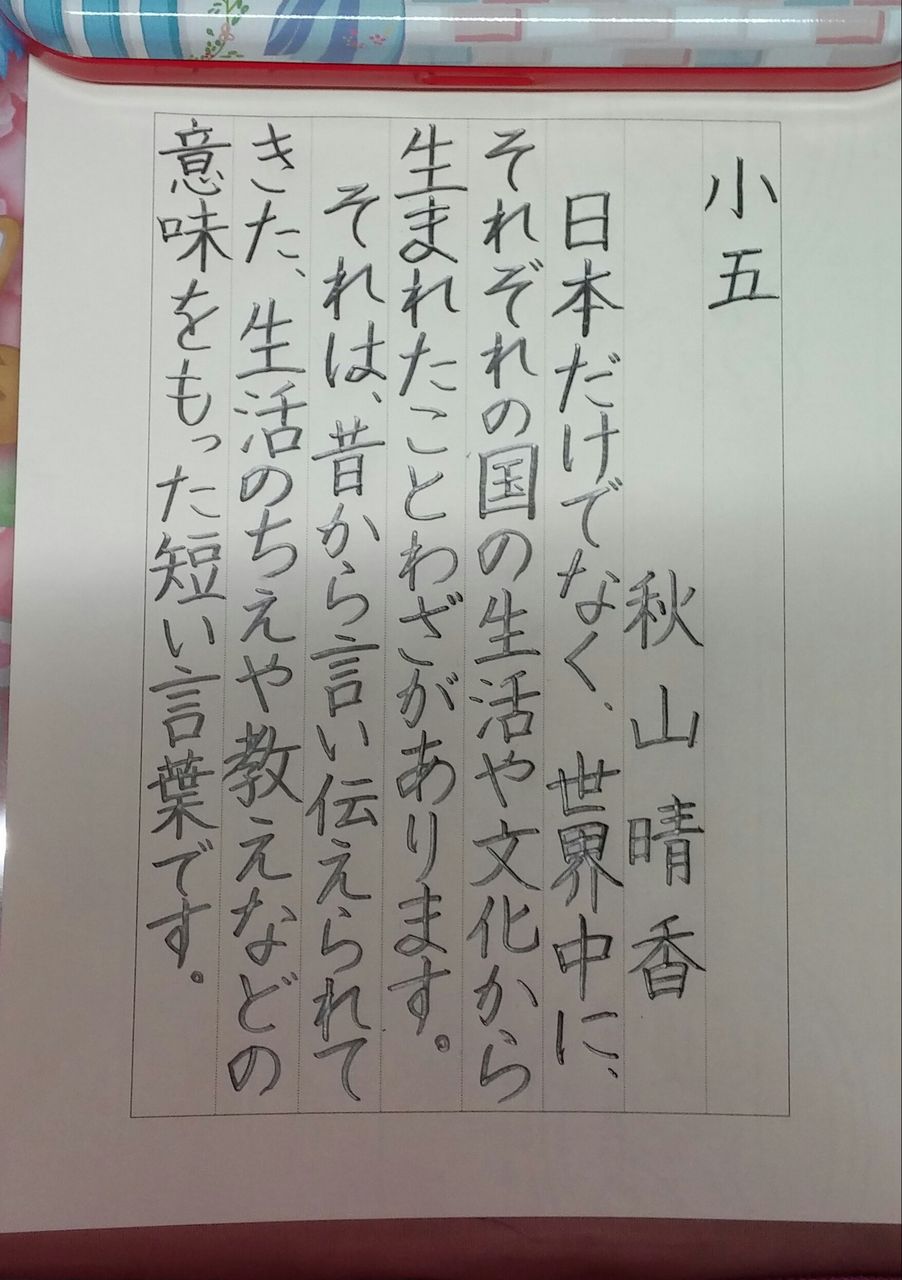 小五
秋山晴香
日本だけでなく、世界中に、
それぞれの国の生活や文化から
生まれたことわざがあります。
それは、昔から言い伝えられて
きた、生活のちえや教えなどの
意味をもった短い言葉です。